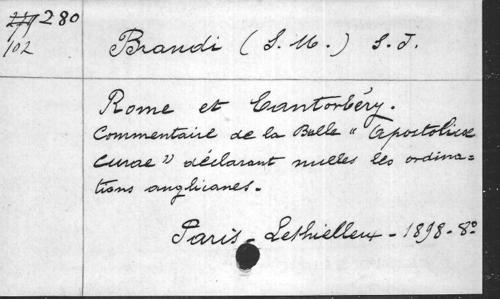 280
102
Brandi (S. M.) S. J.
Rome et Cantorbéry.
Commentaire de la Bulle « Apostolicae
Curae » déclarant nulles les ordina=
tions anglicanes.
Paris - Lethielleux - 1898 - 8º